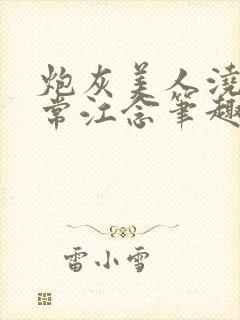 炮灰美人浇
常江念笔趣
雷小雪